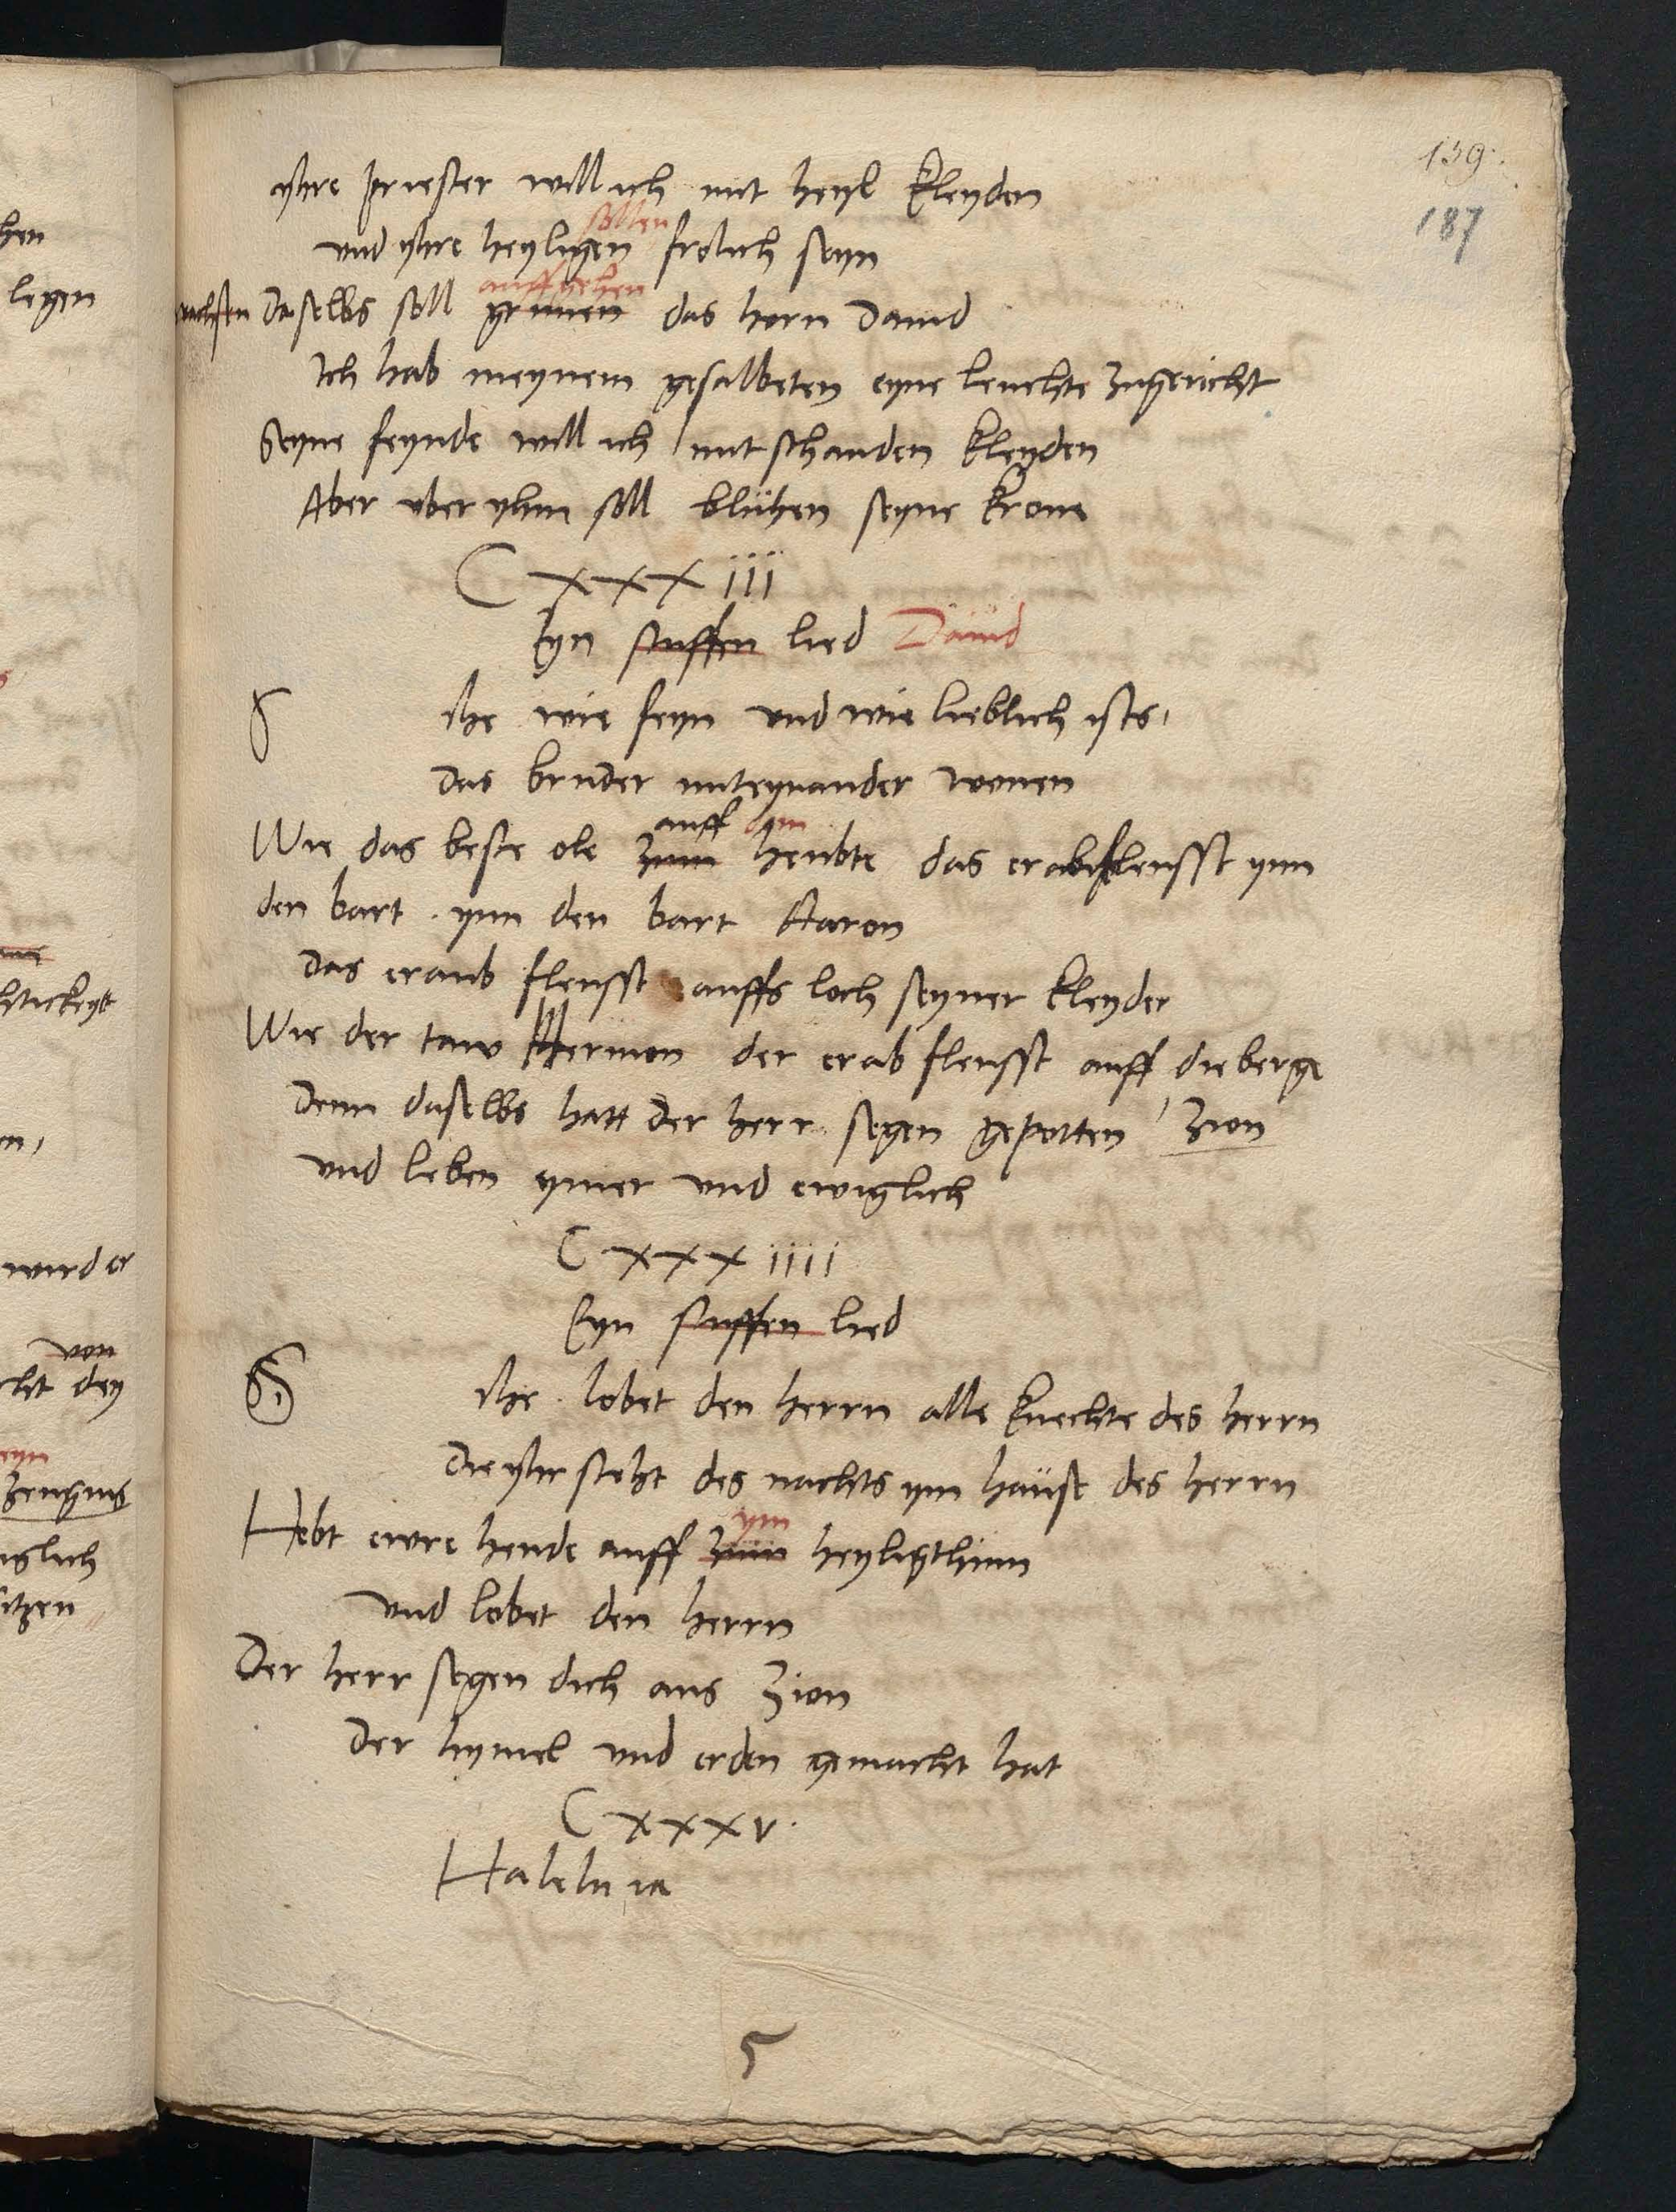 139.
187
yhre priester will ich mit heyl kleyden
sollen
vnd yhre heyligen frolich seyn
auffgehen
wachsen Daselbs soll grunen das horn Dauid
Ich hab meynem gesalbeten eyne leuchte zugericht
Seyne feynde will ich mit schanden kleyden
Aber vber yhm soll blühen seyne krone
C xxx iii
Eyn stuffen lied Dauid
S ihe wie feyn vnd wie lieblich ists,
das bruder miteynander wonen
auff ym
Wie das beste ole zum heubte das erabfleusst ynn
den bart . ynn den bart Aaron
das erab fleusst auffs loch seyner kleyder
Wie der taw Hermon der erab fleusst auff die berge
Denn daselbs hatt der herr segen gepotten Zion
vnd leben ymer vnd ewiglich
C xxx iiii
Eyn stuffen lied
S ihe . lobet den herrn alle knechte des herrn
Die yhr steht des nachts ym hause des herrn
ym
Hebt ewre hende auff zum heyligthum
vnd lobet den herrn
Der herr segen dich aus Zion
der hymel vnd erden gemacht hat
C xxx v.
Halelu ia
hen
legen
wird er
von
dey
eyn
zeugnis
iglich
itzen